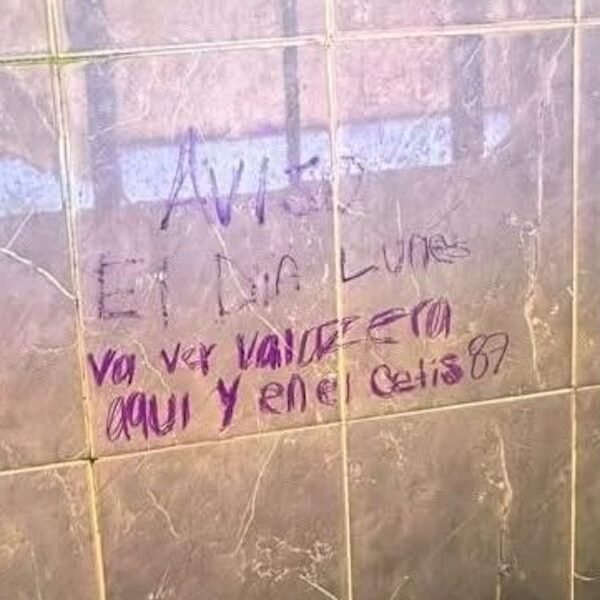 AVISO
El DIA LUNes
va ver valazzera
aqui y en el Cetis 87